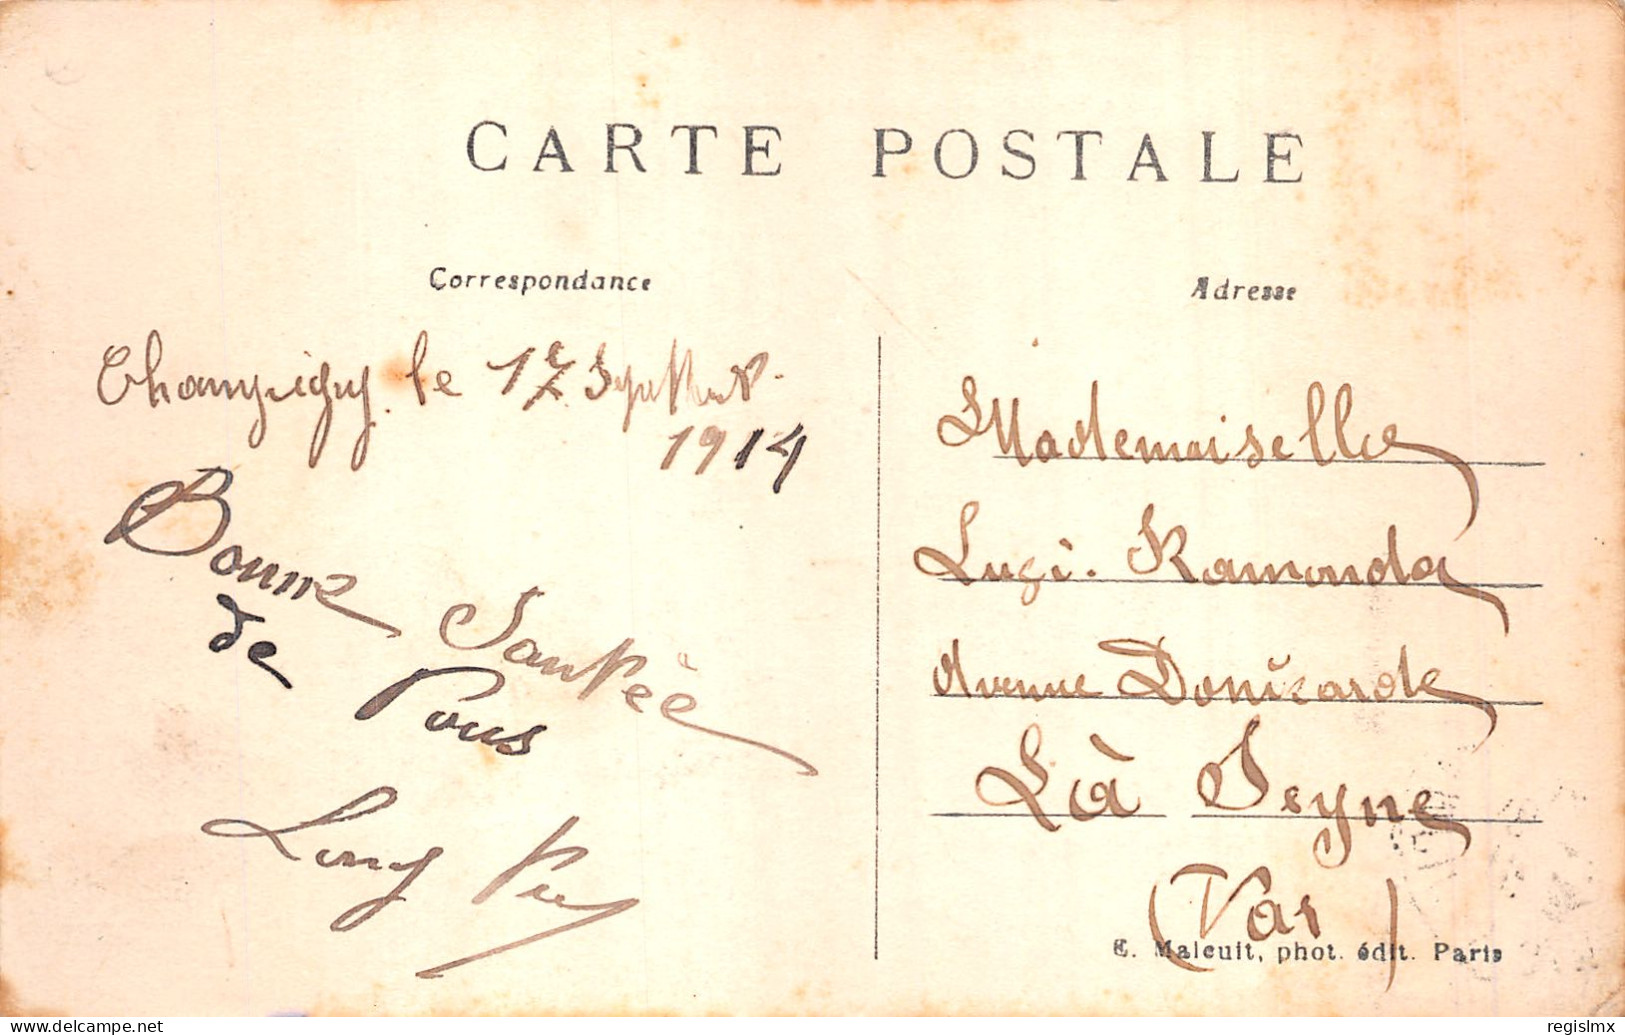 CARTE POSTALE
Correspondance
Adresse
Champigny le 17 Septembre
1914
Bonne Santée
de Pous
Long
Mademoiselle
Luzi. Ramonda
Avenue Donicarde
Là Seyne
(Var)
E. Malcuit, phot. édit. Paris
www.delcampe.net
regislmx